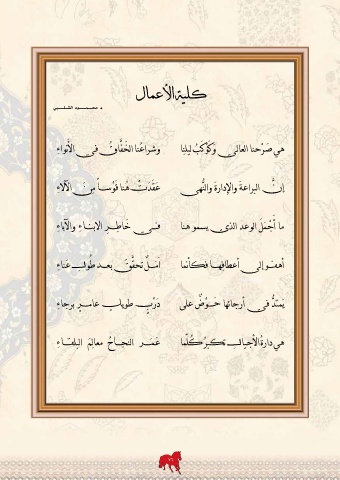 كلية الأعمال
د. محمود الشلبي
هي صَرْحنا العالي وكوكبُ ليلنا وشراعُنا الخفّاقُ في الأنواءِ
إنَّ البراعةَ والإدارةَ والنُّهى عَقَدَتْ هُنا قوْساً مِنَ الآلاءِ
ما أجْمَلَ الوعدَ الذي يسمو هنا في خاطرِ الأبناءِ والآباءِ
أهفو إلى أعطافِها فكأنما أملٌ تحقّقَ بعد طُولِ عناءِ
يمتدُّ في أرجائها حَوْضٌ على دَرْبٍ طويلٍ عامرٍ برجاءِ
هي دارةُ الأجيالِ تكبرُ كُلّما غمَر النجاحُ معالِمَ البلقاءِ